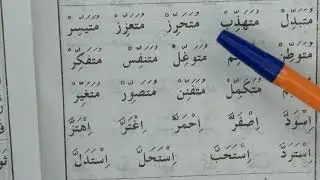 مُتَيَسِّرْ مُتَعَزِّزْ مُتَحَرِّزْ مُتَهَذِّبْ مُتَبَدِّلْ
مُتَفَكِّرْ مُتَنَفِّسْ مُتَوَغِّلْ مُتَوَطِّنْ
مُتَغَيِّرْ مُتَصَوِّرْ مُتَفَنِّنْ مُتَكَمِّلْ
اِهْتَزَّ اِغْتَرَّ اِحْمَرَّ اِصْفَرَّ اِسْوَدَّ
اِسْتَدَلَّ اِسْتَحَلَّ اِسْتَحَبَّ اِسْتَرَدَّ